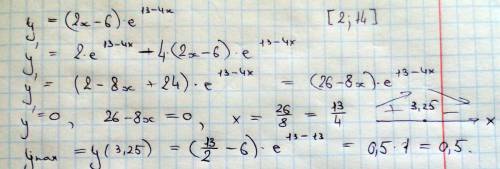 y = (2x-6)·e^{13-4x} [2;14]
y' = 2·e^{13-4x} - 4(2x-6)·e^{13-4x}
y' = (2-8x+24)·e^{13-4x} = (26-8x)·e^{13-4x}
y'=0, 26-8x=0, x = 26/8 = 13/4 + 3,25 - x
y max = y(3,25) = (13/2 - 6)·e^{13-13} = 0,5·1 = 0,5.